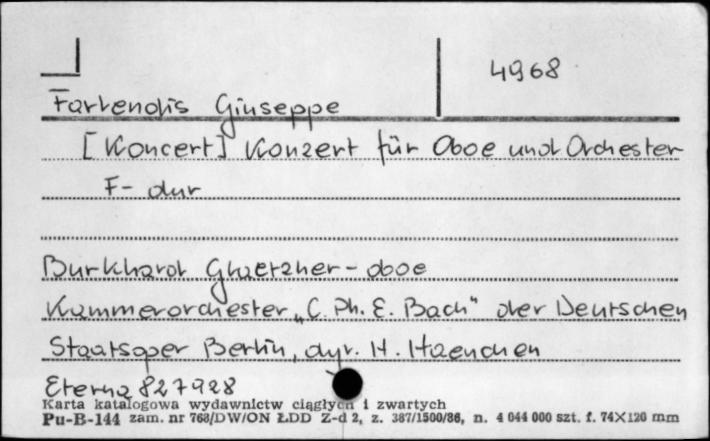 4968
Farlendis Giuseppe
[Koncert] Konzert für Oboe und Orchester
F-dur
Burkhard Glaetzner - oboe
Kammerorchester „C. Ph. E. Bach" der Deutschen
Staatsoper Berlin, dyr. H. Haenchen
Eterna 827928
Karta katalogowa wydawnictw ciągłych i zwartych
Pu-B-144 zam. nr 768/DW/ON ŁDD Z-d 2, z. 387/1500/86, n. 4 044 000 szt. f. 74×120 mm